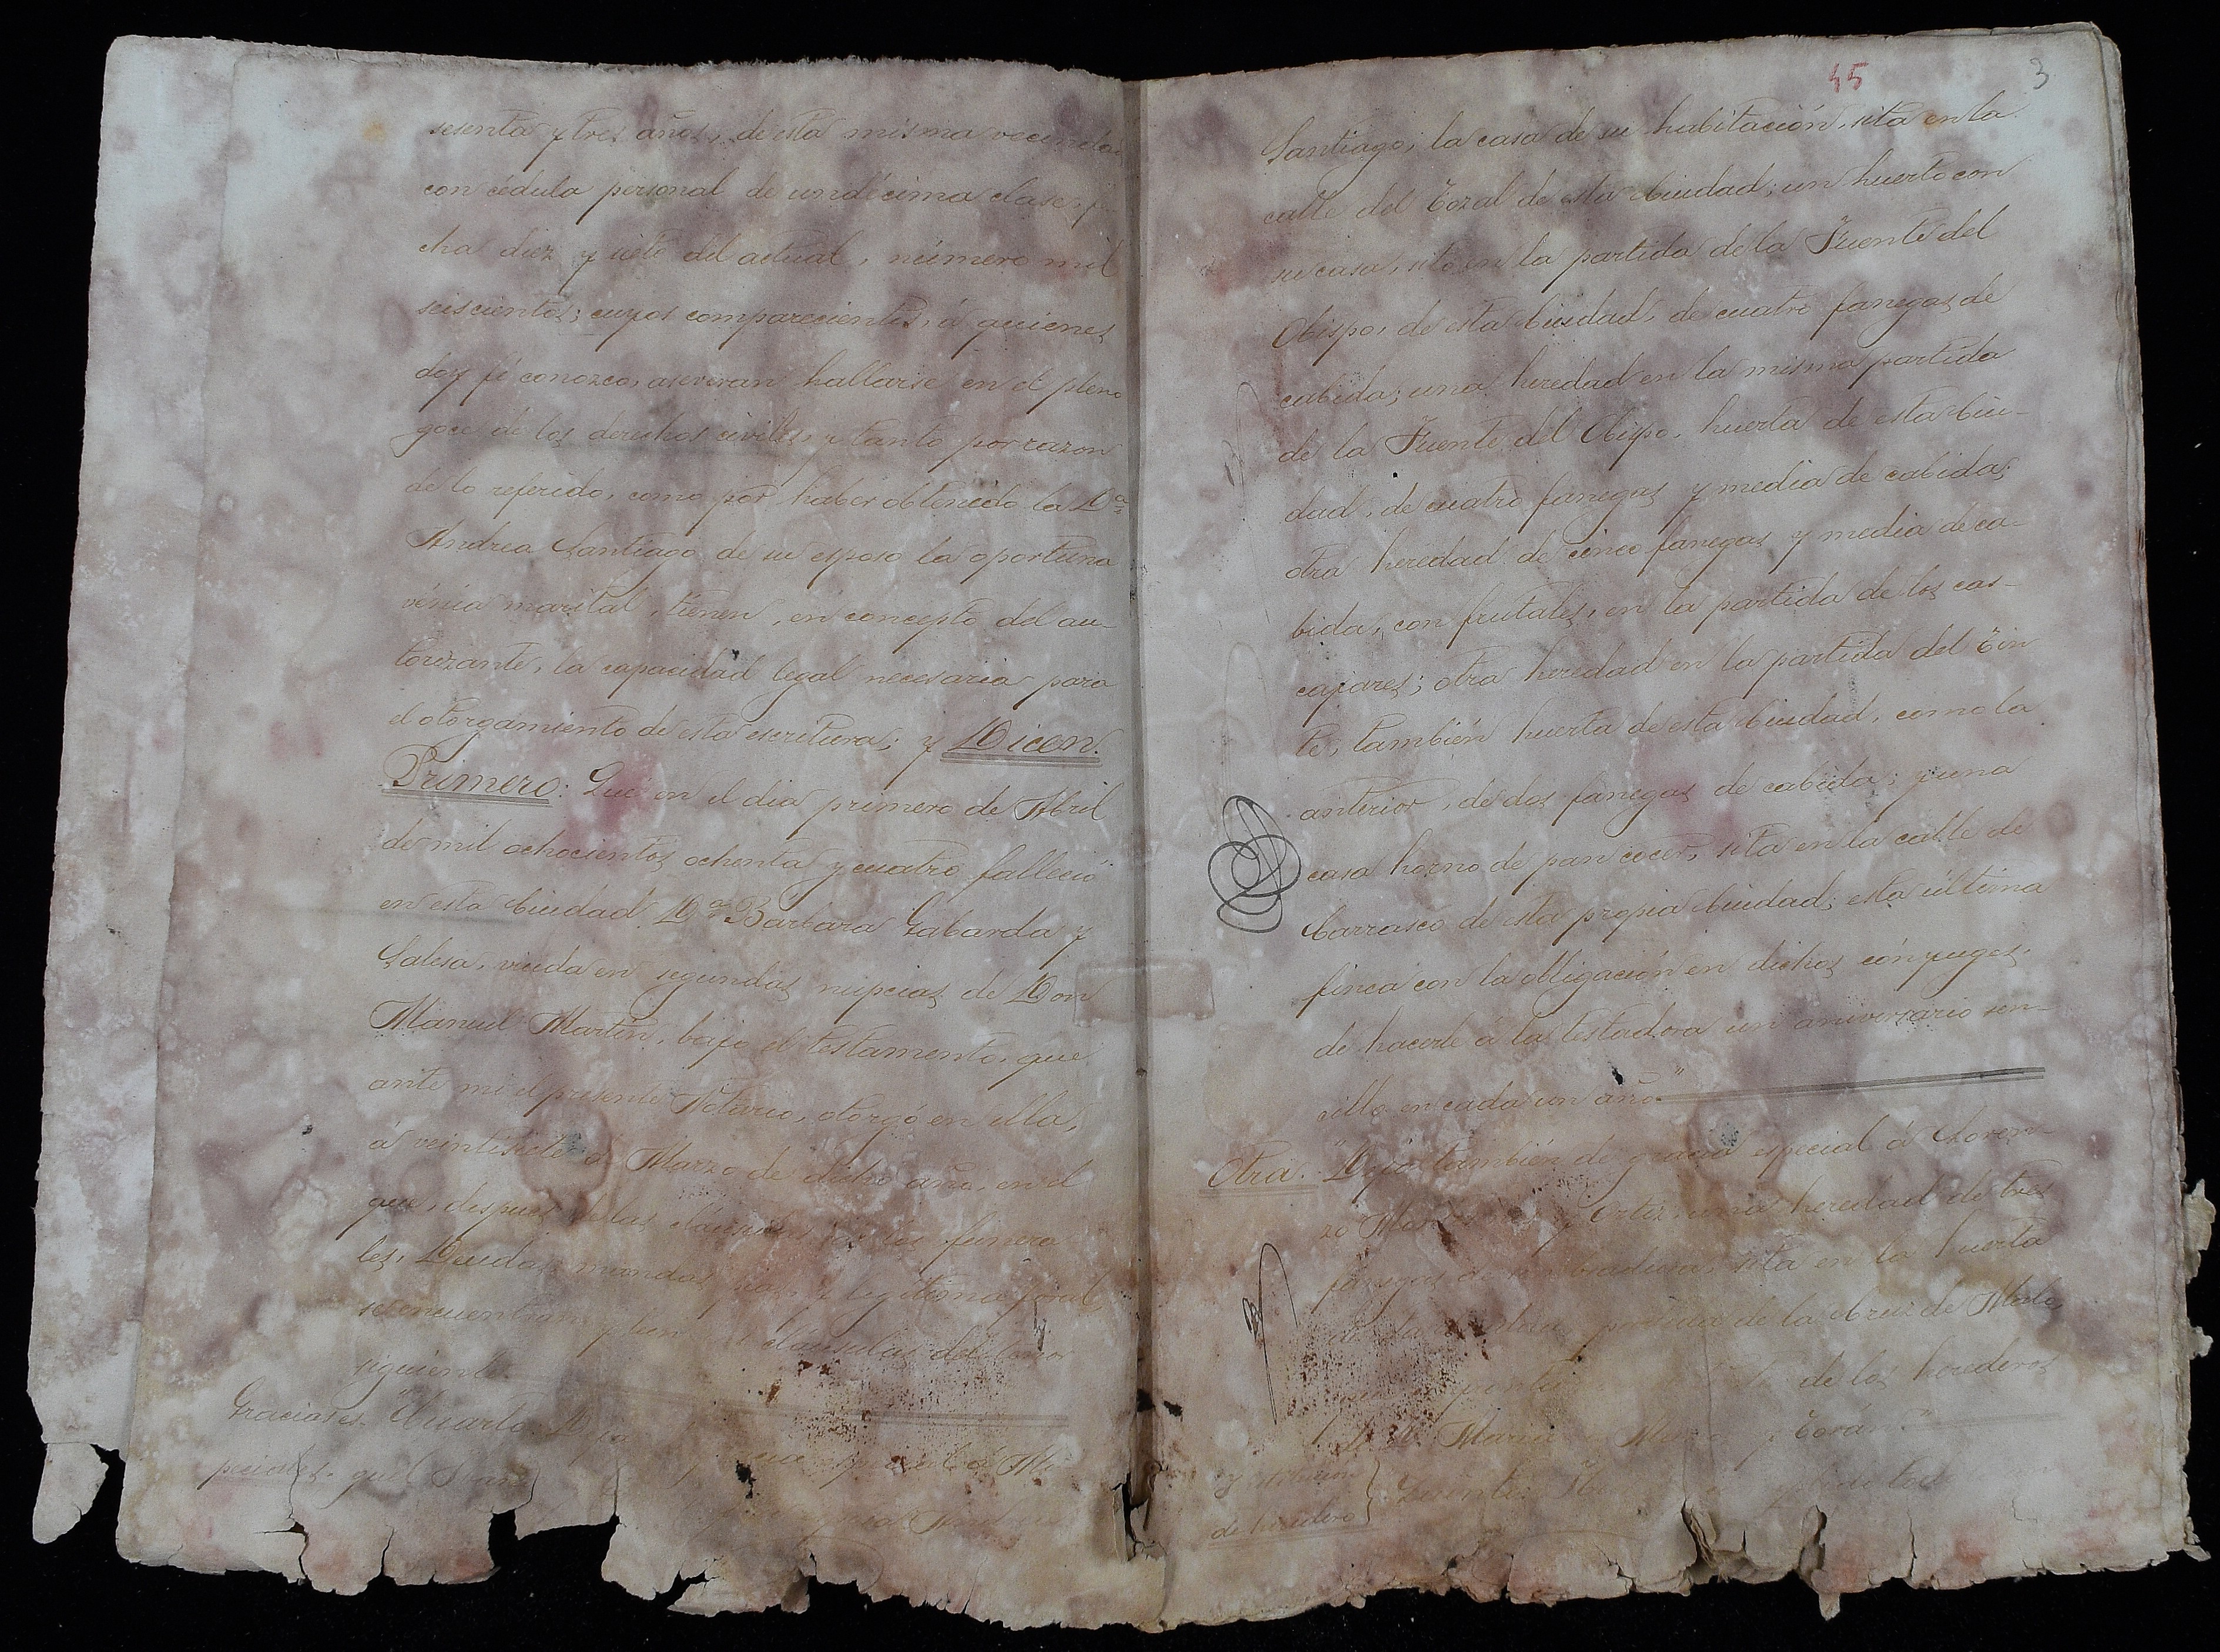 sesenta y tres años, de esta misma vecindad
con cédula personal de undécima clase, fe-
cha diez y siete del actual, número mil
seiscientos; cuyos comparecientes, á quienes
doy fé conozco, aseveran hallarse en el pleno
goce de los derechos civiles, y tanto por razon
de lo referido, como por haber obtenido la Dª
Andrea Santiago de su esposo la oportuna
vénia marital, tienen, en concepto del au-
torizante, la capacidad legal necesaria para
el otorgamiento de esta escritura; y Dicen.
Primero: Que en el dia primero de Abril
de mil ochocientos ochenta y cuatro falleció
en esta Ciudad Dª Barbara Gabarda y
Salesa, viuda en segundas nupcias de Don
Manuel Martin, bajo el testamento, que
ante mi el presente Notario, otorgó en ella,
á veintisiete de Marzo de dicho año, en el
que, despues de las cláusulas de los funera-
les, Deudas, mandas pias, y legitima foral,
se encuentran cláusulas del tenor
siguiente.
Gracias es- "Cuarto. especial á Mi-
peciales. guel
Andrea
45 3
Santiago; la casa de su habitación, sita en la
calle del Tozal de esta Ciudad; un huerto con
su casa, sito en la partida de la Fuente del
Obispo, de esta Ciudad, de cuatro fanegas de
cabida; una heredad en la misma partida
de la Fuente del Obispo, huerta de esta Ciu-
dad, de cuatro fanegas y media de cabida;
otra heredad de cinco fanegas y media de ca-
bida, con frutales, en la partida de los cas-
cajares; otra heredad en la partida del Tin
te, también huerta de esta Ciudad, como la
anterior, de dos fanegas de cabida; y una
casa horno de pan cocer, sita en la calle de
Carrasco de esta propia Ciudad; esta última
finca con la obligación en dichos cónyuges,
de hacerle á la testadora un aniversario sen-
cillo en cada un año."
Otra. "Dejo también de gracia especial á Loren-
zo y Ortiz, una heredad de tres
fanegas de sembradura, sita en la huerta
de esta partida de la Cruz de
de los herederos
de D. Maria y Torán."
de heredero